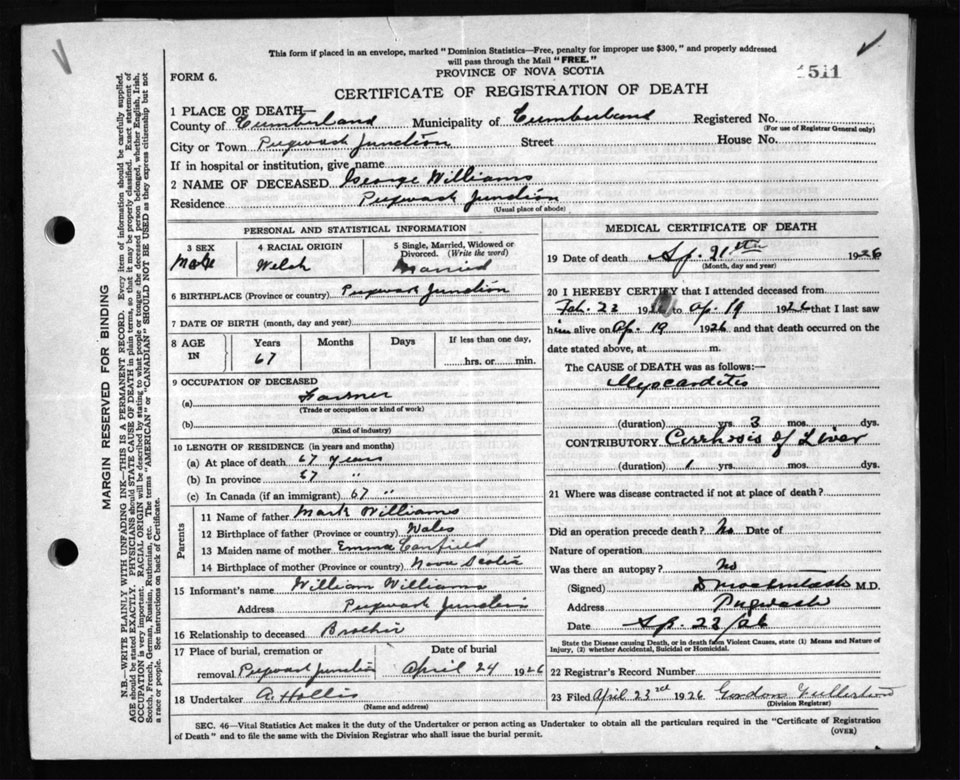 This form if placed in an envelope, marked "Dominion Statistics—Free, penalty for improper use $300," and properly addressed
will pass through the Mail "FREE."
FORM 6.
PROVINCE OF NOVA SCOTIA
1511
CERTIFICATE OF REGISTRATION OF DEATH
1 PLACE OF DEATH—
County of Cumberland Municipality of Cumberland Registered No.
(For use of Registrar General only)
City or Town Pugwash Junction Street House No.
If in hospital or institution, give name
2 NAME OF DECEASED George Williams
Residence Pugwash Junction
(Usual place of abode)
PERSONAL AND STATISTICAL INFORMATION
3 SEX 4 RACIAL ORIGIN 5 Single, Married, Widowed or
Divorced. (Write the word)
Male Welsh Married
6 BIRTHPLACE (Province or country) Pugwash Junction
7 DATE OF BIRTH (month, day and year)
8 AGE IN Years Months Days If less than one day,
67 hrs. or min.
9 OCCUPATION OF DECEASED
(a) Farmer
(Trade or occupation or kind of work)
(b)
(Kind of industry)
10 LENGTH OF RESIDENCE (in years and months)
(a) At place of death 67 years
(b) In province 67 "
(c) In Canada (if an immigrant) 67 "
Parents
11 Name of father Mark Williams
12 Birthplace of father (Province or country) Wales
13 Maiden name of mother Emma Canfield
14 Birthplace of mother (Province or country) Nova Scotia
15 Informant's name William Williams
Address Pugwash Junction
16 Relationship to deceased Brother
17 Place of burial, cremation or Date of burial
removal Pugwash Junction April 24 1926
18 Undertaker A. Hollis
(Name and address)
MEDICAL CERTIFICATE OF DEATH
19 Date of death Ap. 21th 1926
(Month, day and year)
20 I HEREBY CERTIFY that I attended deceased from
Feb. 22 1926 to Ap. 19 1926 that I last saw
him alive on Ap. 19 1926 and that death occurred on the
date stated above, at m.
The CAUSE OF DEATH was as follows:—
Myocarditis
(duration) yrs. 3 mos. dys.
CONTRIBUTORY Cirrhosis of Liver
(duration) 1 yrs. mos. dys.
21 Where was disease contracted if not at place of death?
Did an operation precede death? No Date of
Nature of operation
Was there an autopsy? No
(Signed) D Mackintosh M.D.
Address Pugwash
Date Ap. 23/26
State the Disease causing Death, or in death from Violent Causes, state (1) Means and Nature of
Injury, (2) whether Accidental, Suicidal or Homicidal.
22 Registrar's Record Number
23 Filed April 23rd 1926 Gordon Fullerton
(Division Registrar)
SEC. 46—Vital Statistics Act makes it the duty of the Undertaker or person acting as Undertaker to obtain all the particulars required in the "Certificate of Registration
of Death" and to file the same with the Division Registrar who shall issue the burial permit.
(OVER)
MARGIN RESERVED FOR BINDING
N.B.—WRITE PLAINLY WITH UNFADING INK—THIS IS A PERMANENT RECORD. Every item of information should be carefully supplied.
AGE should be stated EXACTLY. PHYSICIANS should STATE CAUSE OF DEATH in plain terms, so that it may be properly classified. Exact statement of
OCCUPATION is very important. RACIAL ORIGIN will be described by stating to what people or tongue the deceased person belonged, whether English, Irish,
Scotch, French, German, Russian, Ruthenian, etc. The terms "AMERICAN" or "CANADIAN" SHOULD NOT BE USED as they express citizenship but not
a race or people. See instructions on back of Certificate.